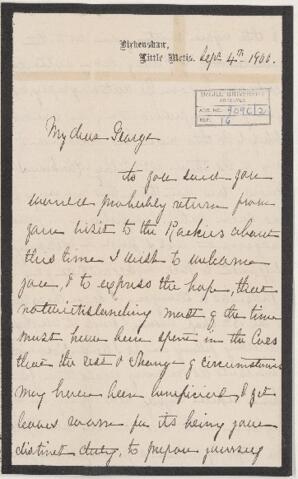 Birkenshaw,
Little Metis. Sept 4th 1900.
McGILL UNIVERSITY
ARCHIVES
ACC. NO. 909C/2
REF. 16
My dear George
As you said you
would probably return from
your visit to the Rockies about
this time I wish to welcome
you, & to express the hope, that
notwithstanding most of the time
must have been spent in the Cars
that the rest & change of circumstances
may have been beneficial & yet
leaves room for its being your
distinct duty, to prepare yourself